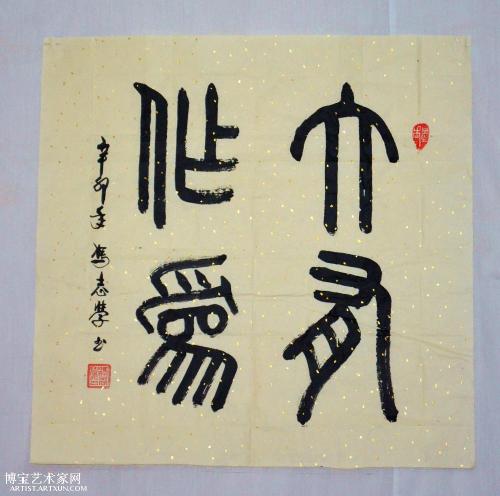 大有
作為
辛卯年 馮志學 书
博宝艺术家网
ARTIST.ARTXUN.COM